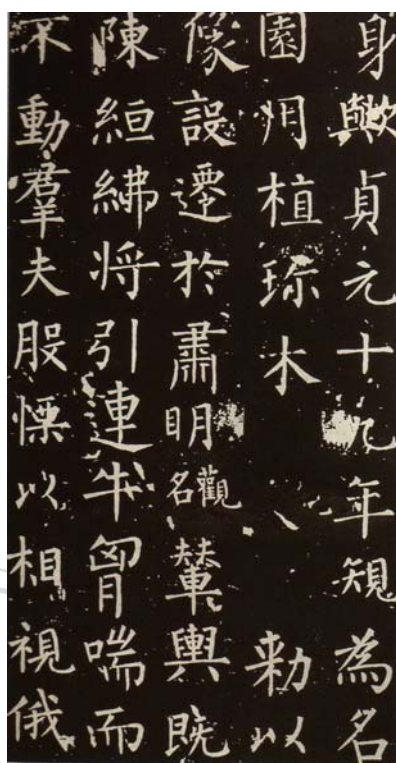 身歟貞元十九年規為名
園用植珎木 敕以
像設遷於肅明觀名輦輿既
陳絙紼将引連牛胷喘而
不動羣夫股慄以相視俄